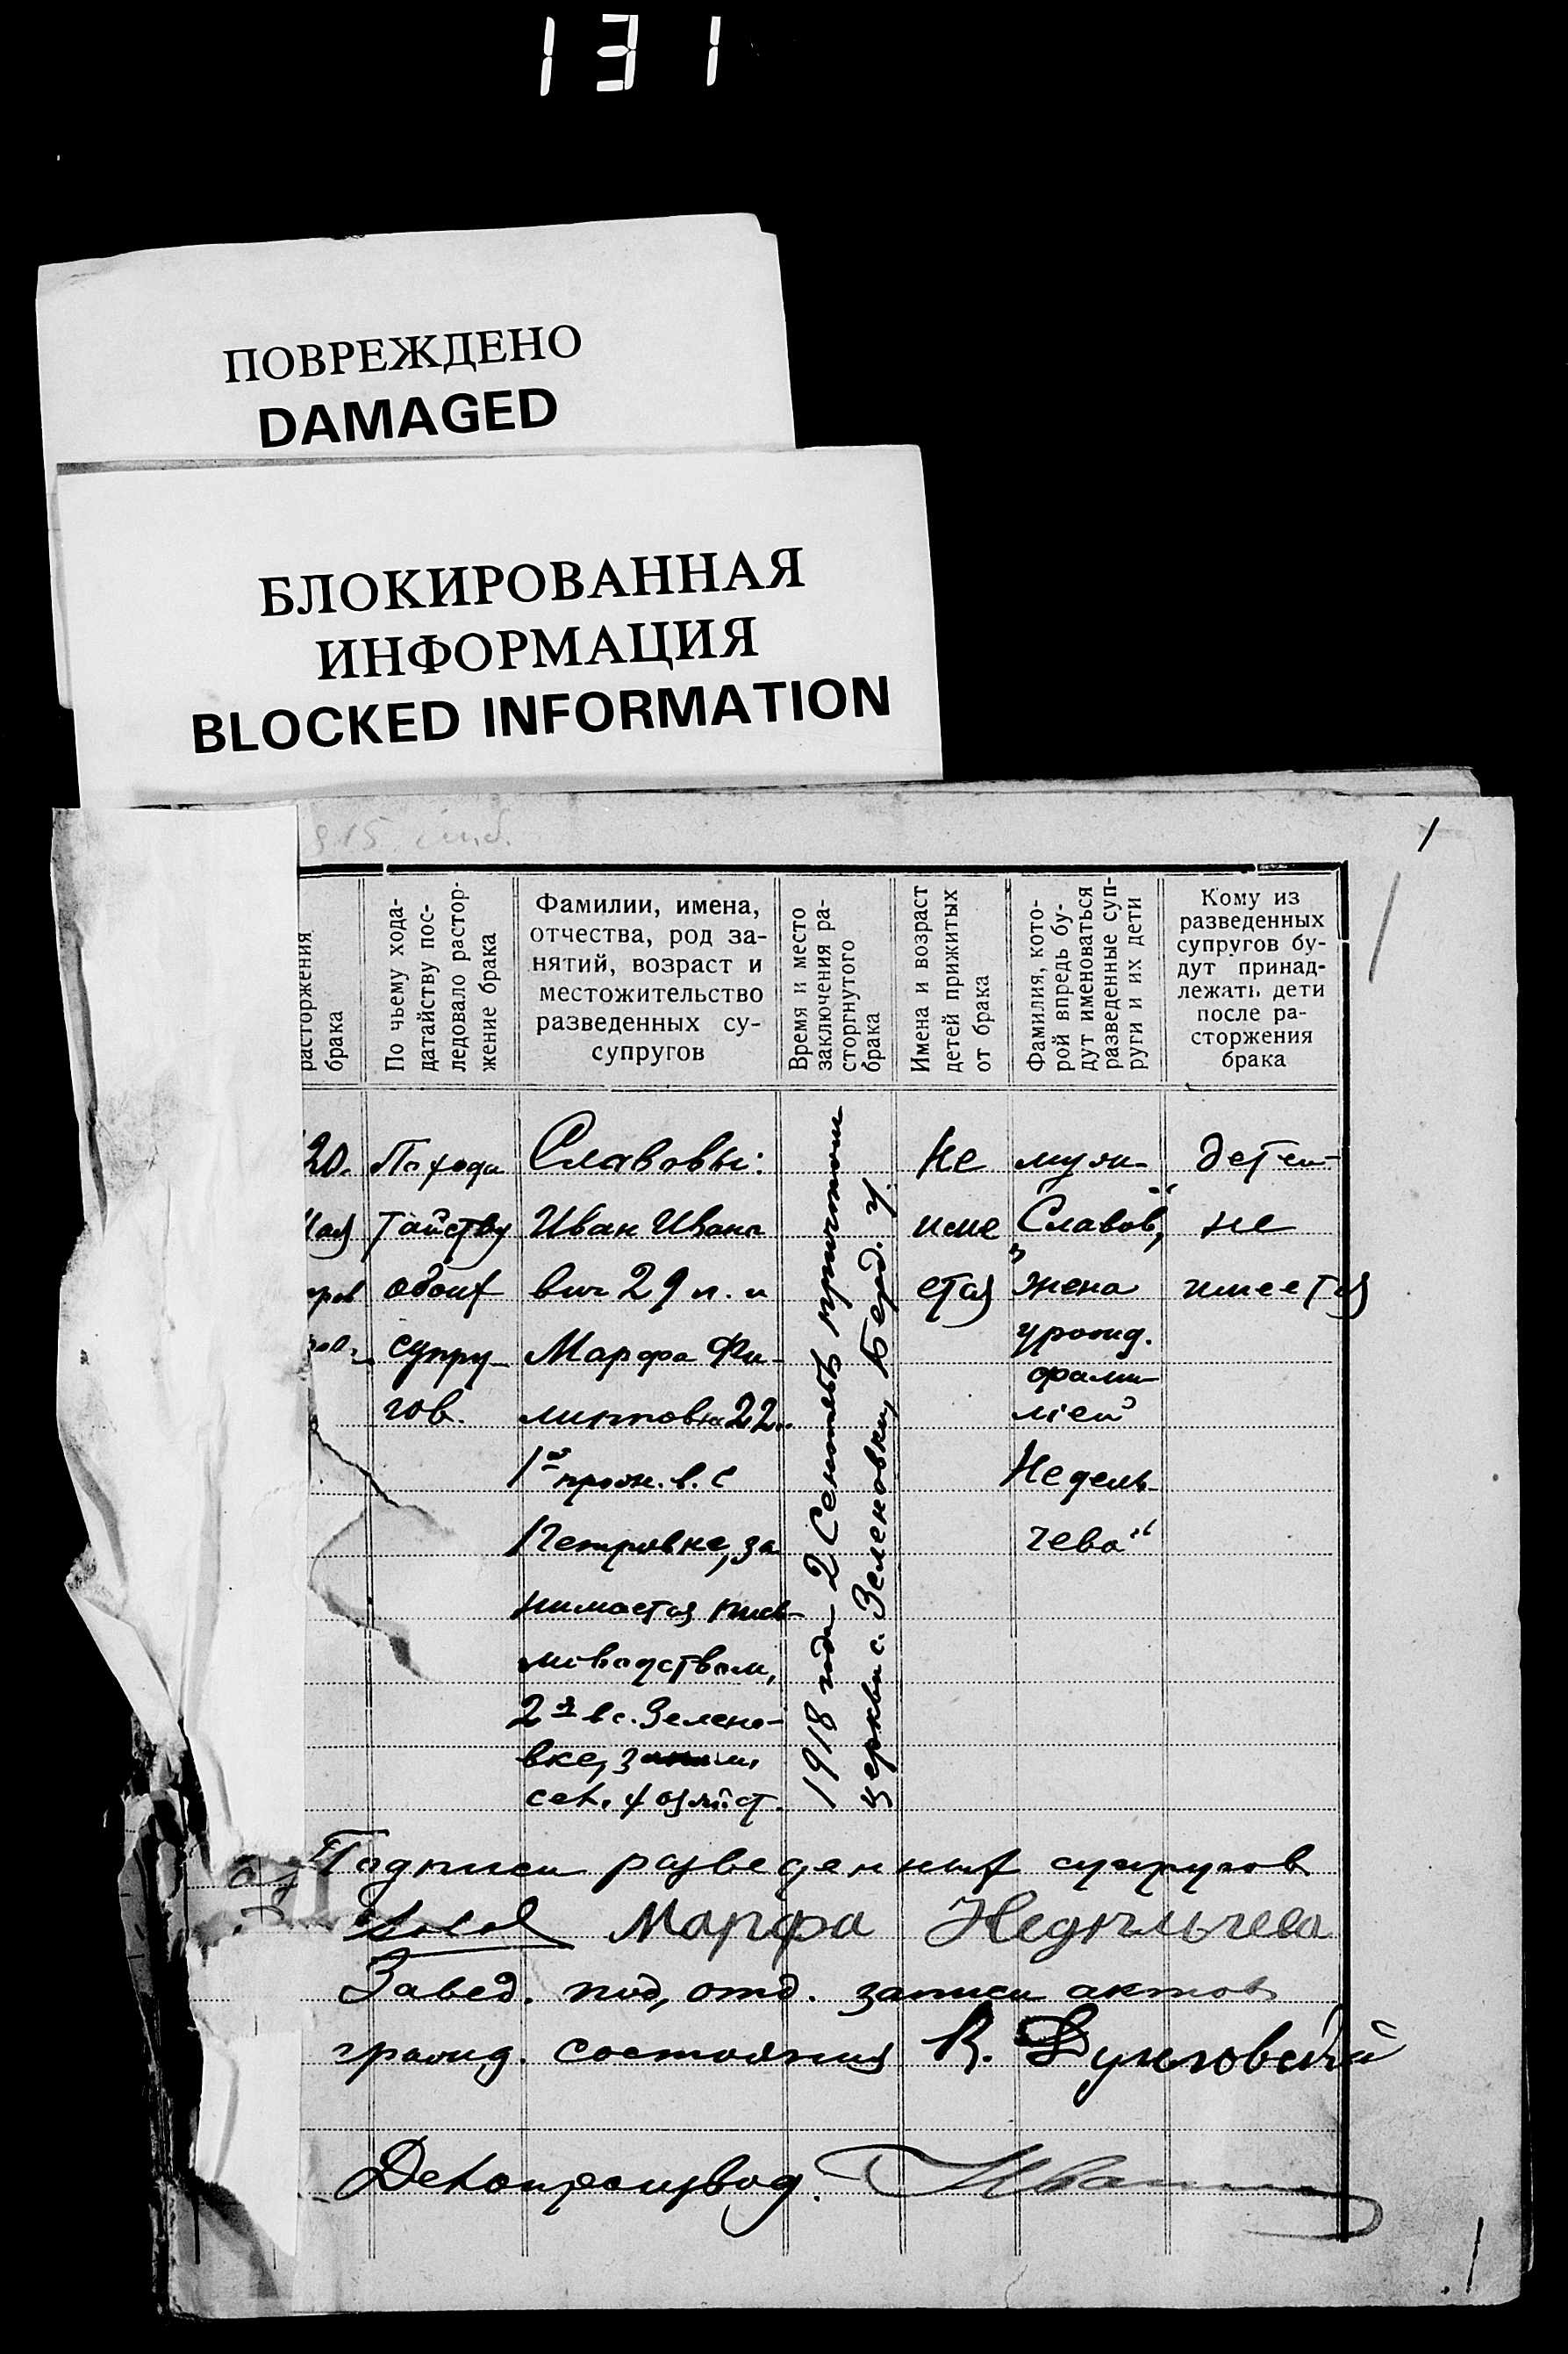 131
ПОВРЕЖДЕНО
DAMAGED
БЛОКИРОВАННАЯ
ИНФОРМАЦИЯ
BLOCKED INFORMATION
1
расторжения
брака
По чьему хода-
датайству пос-
ледовало растор-
жение брака
Фамилии, имена,
отчества, род за-
нятий, возраст и
местожительство
разведенных су-
супругов
Время и место
заключения ра-
сторгнутого
брака
Имена и возраст
детей прижитых
от брака
Фамилия, кото-
рой впредь бу-
дут именоваться
разведенные суп-
руги и их дети
Кому из
разведенных
супругов бу-
дут принад-
лежать дети
после ра-
сторжения
брака
20.
По хода
тайству
обоих
супру-
гов.
Славовы:
Иван Ивано
вич 29 л. и
Марфа Фи-
липповна 22..
1й прож. в. с
Петровке, за
нимается пись-
моводством,
2я в с. Зелено-
вке, заним.
сел. хозяйст.
1918 года 2 Сентября причтом
церкви с. Зеленовки, Берд. у.
Не
име
ется
муж-
„Славов“,
жена
урожд.
фами
лией
„Недель
чева“
детей-
не
имеется
Подписи разведенных супругов
Марфа Недельчева
Завед. под, отд. записи актов
гражд. состояния К.
Делопроизвод.
1